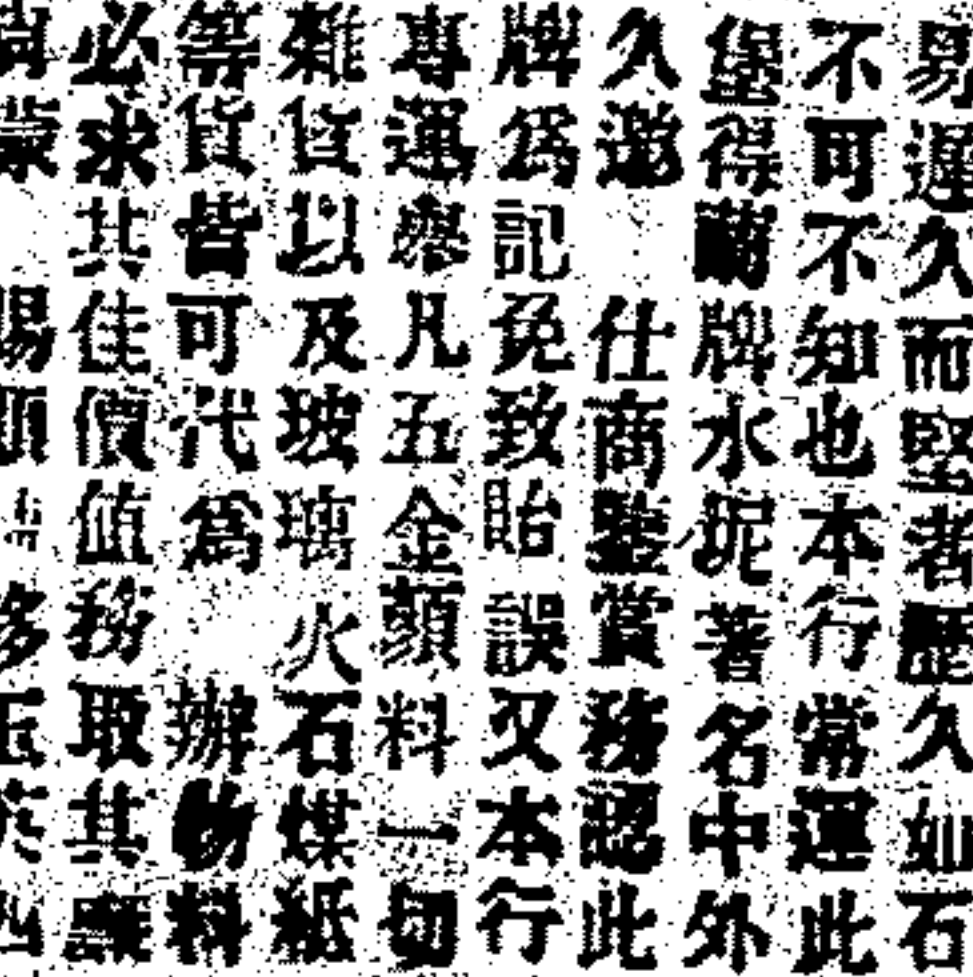 易遲久而堅者歷久如石
不可不知也本行常運此
堡得蘭牌水坭著名中外
久邀 仕商鑒賞務認此
牌爲記免致貽誤又本行
專運舉凡五金顏料一切
雜貨以及玻璃火石煤紙
等貨皆可代爲 辦物料
必求其佳價值務取其廉
蒙 賜顧移玉